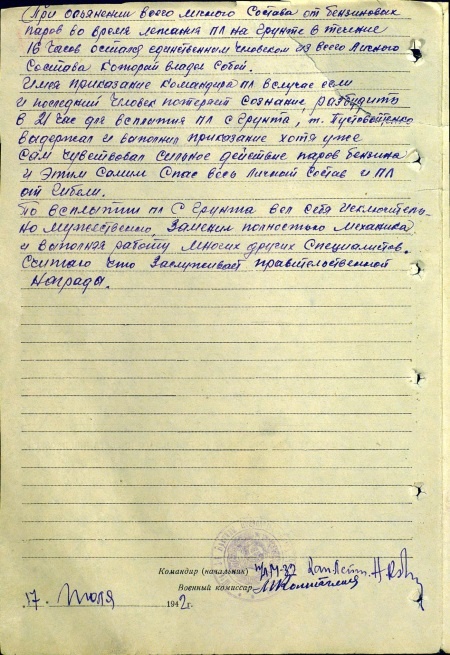 (При опьянении всего личного состава от бензиновых
паров во время лежания пл на грунте в течение
16 часов остался единственным человеком из всего личного
состава который владел собой.
Имея приказание командира пл вслучае если
и последний человек потеряет сознание разбудить
в 21 час для всплытия пл с грунта, т. Пустовойтенко
выдержал и выполнил приказание хотя уже
сам чувствовал сильное действие паров бензина
и этим самим спас весь личный состав и ПЛ
от гибели.
По всплытии пл с грунта вел себя исключитель-
но мужественно, заменил полностью механика
и выполнял работу многих других специалистов.
Считаю что заслуживает правительственной
награды.
Командир (начальник) п/л М-32 Кап.Лейт.
Военный комиссар
"17" Июля 1942г.